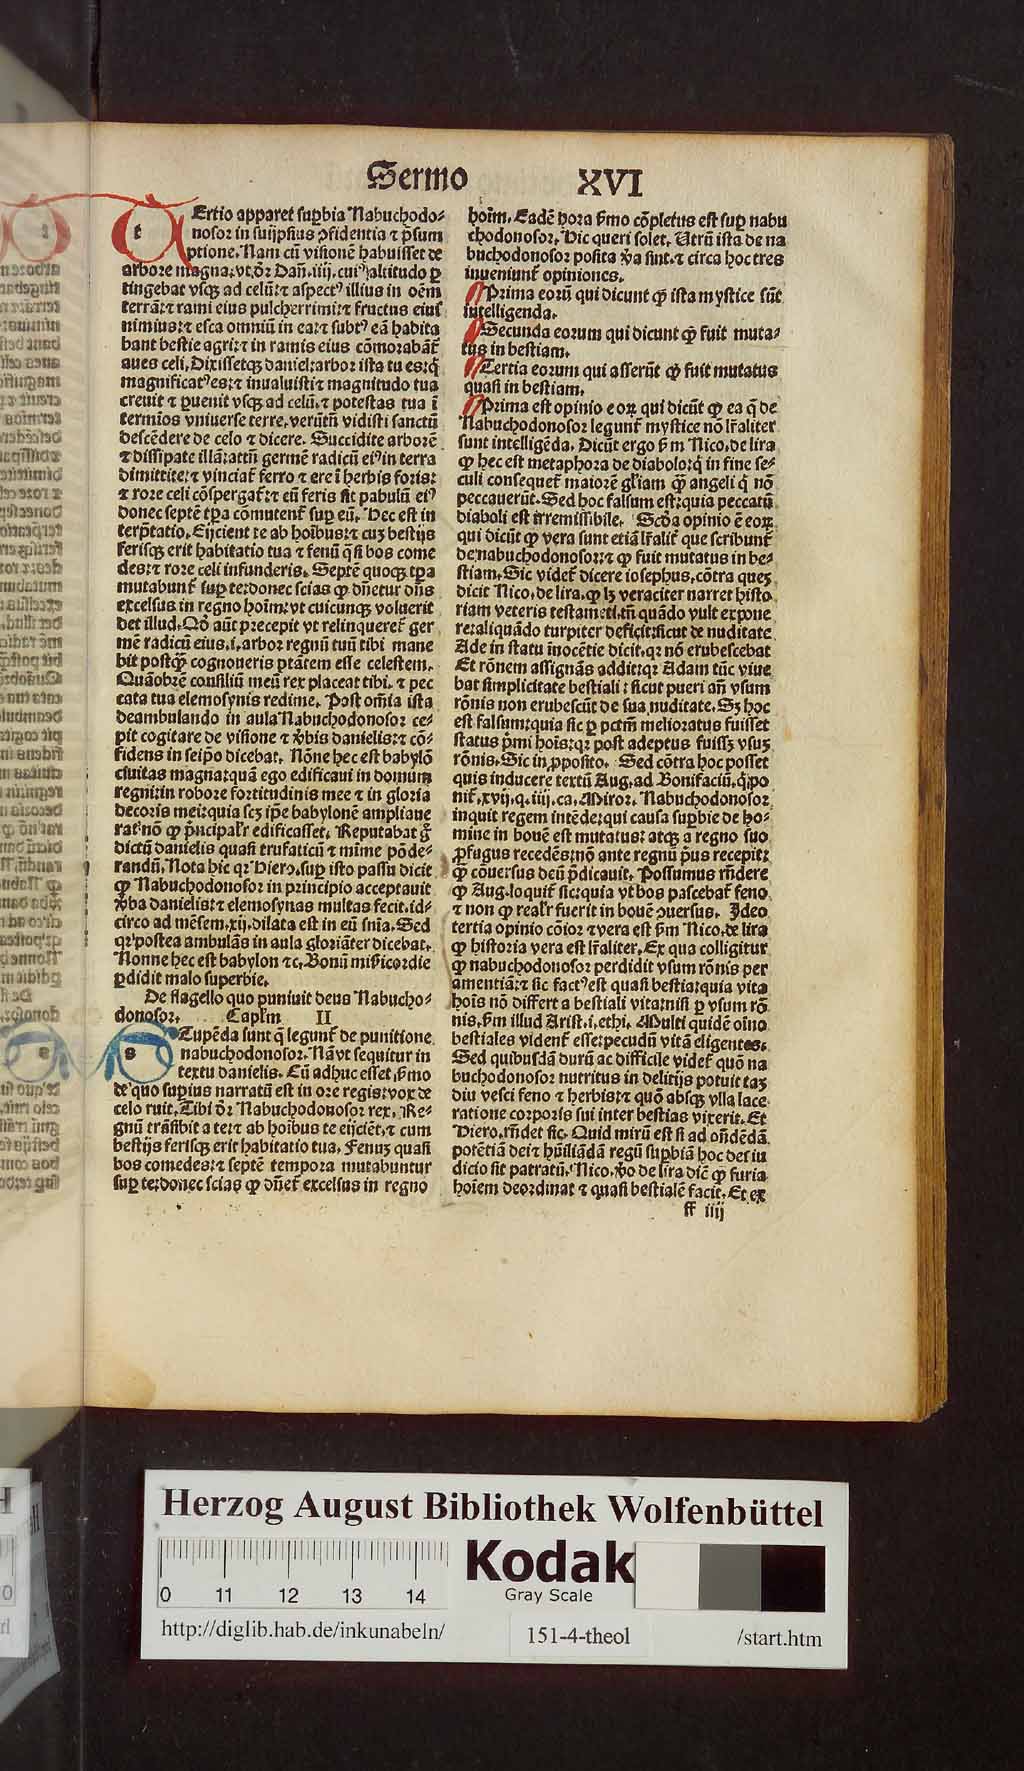 Sermo XVI
tErtio apparet supbia Nabuchodo⸗
nosor in suijpsius ꝯfidentia ⁊ p̄sum
ptione. Nam cū visionē habuisset de
arbore magna: vt. dr̄. Dan̄. iiij. cuiꝰ altitudo ꝑ
tingebat vsq̄ ad celū: ⁊ aspectꝰ illius in oēm
terrā: ⁊ rami eius pulcherrimi: ⁊ fructus eius
nimius: ⁊ esca omniū in ea: ⁊ subtꝰ eā habita
bant bestie agri: ⁊ in ramis eius cōmorabāt̄
aues celi. Dixissetq̄ daniel: arbor ista tu es: q̄
magnificatꝰ es: ⁊ inualuisti ⁊ magnitudo tua
creuit ⁊ ꝑuenit vsq̄ ad celū. ⁊ potestas tua ī
termīos vniuerse terre. verūtn̄ vidisti sanctū
descēdere de celo ⁊ dicere. Succidite arborē
⁊ dissipate illā: attn̄ germē radicū eiꝰ in terra
dimittite: ⁊ vinciat̄ ferro ⁊ ere ī herbis foris:
⁊ rore celi cōspergat̄: ⁊ cū feris sit pabulū eiꝰ
donec septē tꝑa cōmutent̄ suꝑ eū. Hec est in
terp̄tatio. Eijcient te ab hoībus: ⁊ cuȝ bestijs
ferisq̄ erit habitatio tua ⁊ fenū q̄si bos come
des: ⁊ rore celi infunderis. Septē quoq̄ tꝑa
mutabunt̄ suꝑ te: donec scias ꝙ dn̄etur dn̄s
excelsus in regno hoīm: vt cuicunq̄ voluerit
det illud. Qd̄ aūt precepit vt relinqueret̄ ger
mē radicū eius. i. arbor regnū tuū tibi mane
bit postq̄ꝫ cognoueris ptātem esse celestem.
Quāobrē consiliū meū rex placeat tibi. ⁊ pec
cata tua elemosynis redime. Post om̄ia ista
deambulando in aula Nabuchodonosor ce⸗
pit cogitare de visione ⁊ v̄bis danielis: ⁊ cō⸗
fidens in seip̄o dicebat. Nōne hec est babylō
ciuitas magna: quā ego edificaui in domum
regni: in robore fortitudinis mee ⁊ in gloria
decoris mei: quia scȝ ip̄e babylonē ampliaue
rat: nō ꝙ p̄ncipalr̄ edificasset. Reputabat g̊
dictū danielis quasi trufaticū ⁊ mīme pōde⸗
randū. Nota hic qꝛ Hiero. suꝑ isto passu dicit
ꝙ Nabuchodonosor in principio acceptauit
v̄ba danielis: ⁊ elemosynas multas fecit. id⸗
circo ad mēsem. xij. dilata est in eū sn̄ia. Sed
qꝛ postea ambulās in aula gloriāter dicebat.
Nonne hec est babylon ⁊c. Bonū mīe ricordie
ꝑdidit malo superbie.
De flagello quo puniuit deus Nabucho⸗
donosor. Caplm̄ II
sTupēda sunt q̄ legunt̄ de punitione
nabuchodonosor. Nā vt sequitur in
textu danielis. Cū adhuc esset s̄mo
de quo supius narratū est in ore regis: vox de
celo ruit. Tibi dr̄ Nabuchodonosor rex. Re⸗
gnū trāsibit a te: ⁊ ab hoībus te eijciēt. ⁊ cum
bestijs ferisq̄ erit habitatio tua. Fenuȝ quasi
bos comedes: ⁊ septē tempora mutabuntur
suꝑ te: donec scias ꝙ dn̄et̄ excelsus in regno
hoīm. Eadē hora s̄mo cōpletus est suꝑ nabu
chodonosor. Hic queri solet. Utrū ista de na
buchodonosor posita v̄a sint. ⁊ circa hoc tres
inueniunt̄ opiniones.
Prima eorū qui dicunt ꝙ ista mystice sūt
intelligenda.
Secunda eorum qui dicunt ꝙ fuit muta⸗
tus in bestiam.
Tertia eorum qui asserūt ꝙ fuit mutatus
quasi in bestiam.
Prima est opinio eoꝝ qui dicūt ꝙ ea q̄ de
Nabuchodonosor legunt̄ mystice nō lr̄aliter
sunt intelligēda. Dicūt ergo s̄m Nico. de lira
ꝙ hec est metaphora de diabolo: q̄ in fine se⸗
culi consequet̄ maiorē gl̄iam ꝙ̄ angeli q̄ nō
peccauerūt. Sed hoc falsum est: quia peccatū
diaboli est irremissibile. Scd̄a opinio ē eoꝝ
qui dicūt ꝙ vera sunt etiā lr̄alit̄ que scribunt̄
de nabuchodonosor: ⁊ ꝙ fuit mutatus in be⸗
stiam. Sic videt̄ dicere iosephus. cōtra queȝ
dicit Nico. de lira. ꝙ lȝ veraciter narret histo
riam veteris testamēti. tn̄ quādo vult expone
re: aliquādo turpiter deficit: sicut de nuditate
Ade in statu inocētie dicit. qꝛ nō erubescebat
Et rōnem assignās addit: qꝛ Adam tūc viue
bat simplicitate bestiali: sicut pueri an̄ vsum
rōnis non erubescūt de sua nuditate. Sȝ hoc
est falsum: quia sic ꝑ pctm̄ melioratus fuisset
status p̄mi hoīs: qꝛ post adeptus fuissȝ vsuȝ
rōnis. Sic in ꝓposito. Sed cōtra hoc posset
quis inducere textū Aug. ad Bonifaciū. q̄ po
nit̄. xvij. q. iiij. ca. Miror. Nabuchodonosor
inquit regem intēde: qui causa supbie de ho⸗
mine in bouē est mutatus: atq̄ a regno suo
ꝓfugus recedēs: nō ante regnū p̄us recepit:
ꝙ̄ cōuersus deū p̄dicauit. Possumus rn̄dere
ꝙ Aug. loquit̄ sic: quia vt bos pascebat̄ feno
⁊ non ꝙ realr̄ fuerit in bouē ꝯuersus. Ideo
tertia opinio cōior ⁊ vera est s̄m Nico. de lira
ꝙ historia vera est lr̄aliter. Ex qua colligitur
ꝙ nabuchodonosor perdidit vsum rōnis per
amentiā: ⁊ sic factꝰ est quasi bestia: quia vita
hoīs nō differt a bestiali vita: nisi ꝑ vsum rō
nis. s̄m illud Arist. i. ethi. Multi quidē oīno
bestiales vident̄ esse: pecudū vitā eligentes.
Sed quibusdā durū ac difficile videt̄ quō na
buchodonosor nutritus in delitijs potuit taȝ
diu vesci feno ⁊ herbis: ⁊ quō absq̄ vlla lace⸗
ratione corporis sui inter bestias vixerit. Et
Hiero. rn̄det sic. Quid mirū est si ad on̄dēdā
potētiā dei ⁊ hūiliādā regū supbiā hoc dei iu
dicio sit patratū. Nico. v̄o de lira diē ꝙ furia
hoīem deordinat ⁊ quasi bestialē facit. Et ex
ff iiij
Herzog August Bibliothek Wolfenbüttel
0 11 12 13 14
Kodak
Gray Scale
http://diglib.hab.de/inkunabeln/ 151-4-theol /start.htm